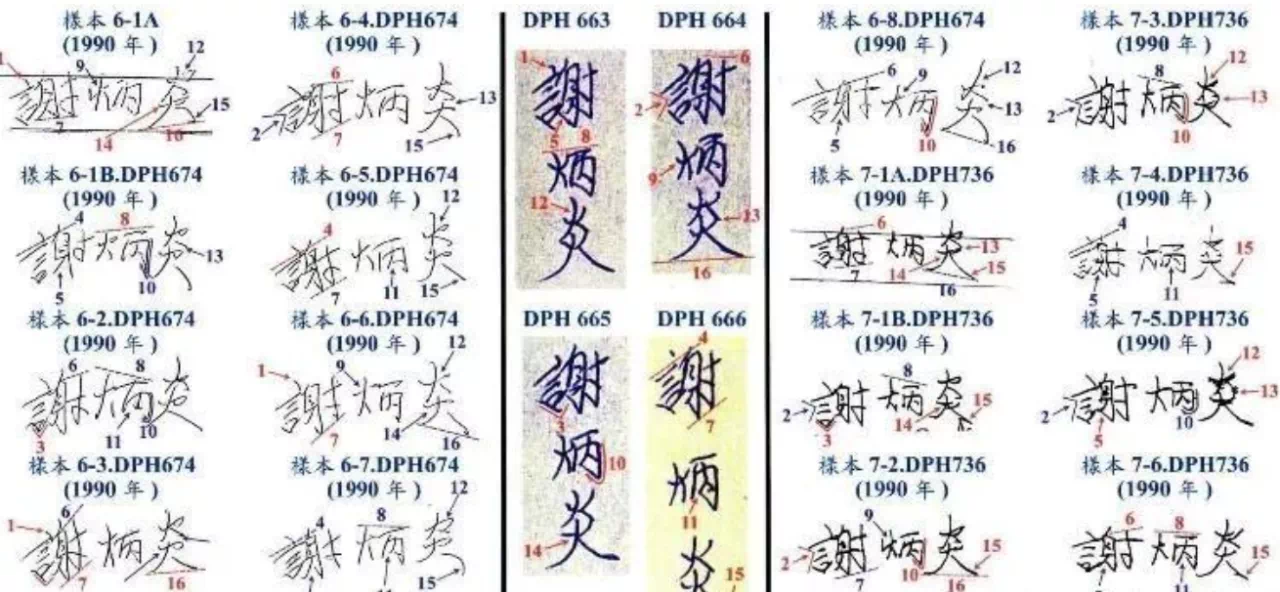 樣本 6-1A
(1990 年)
1
9
12
謝炳炎
15
7
14
10
樣本 6-4.DPH674
(1990 年)
6
謝炳炎
13
2
7
15
DPH 663
1
謝
5
8
炳
12
炎
DPH 664
6
2
謝
9
炳
13
炎
16
樣本 6-8.DPH674
(1990 年)
6
9
12
謝炳炎
13
5
10
16
樣本 7-3.DPH736
(1990 年)
8
12
謝炳炎
13
2
10
樣本 6-1B.DPH674
(1990 年)
4
8
謝炳炎
13
5
10
樣本 6-5.DPH674
(1990 年)
12
4
謝炳炎
7
11
15
樣本 7-1A.DPH736
(1990 年)
6
謝炳炎
13
7
14
15
16
樣本 7-4.DPH736
(1990 年)
4
15
謝炳炎
5
11
樣本 6-2.DPH674
(1990 年)
6
8
謝炳炎
3
11
10
樣本 6-6.DPH674
(1990 年)
12
1
9
謝炳炎
7
14
16
DPH 665
謝
3
炳
10
14
炎
DPH 666
4
謝
7
炳
11
炎
15
樣本 7-1B.DPH736
(1990 年)
8
謝炳炎
15
2
3
14
樣本 7-5.DPH736
(1990 年)
12
謝炳炎
13
2
5
10
樣本 6-3.DPH674
(1990 年)
6
1
謝炳炎
7
16
樣本 6-7.DPH674
(1990 年)
12
4
8
謝炳炎
15
樣本 7-2.DPH736
(1990 年)
9
謝炳炎
15
2
7
10
16
樣本 7-6.DPH736
(1990 年)
6
8
謝炳炎
15
11